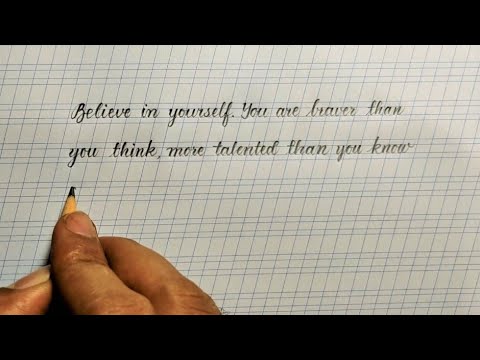 Believe in yourself. You are braver than
you think, more talented than you know